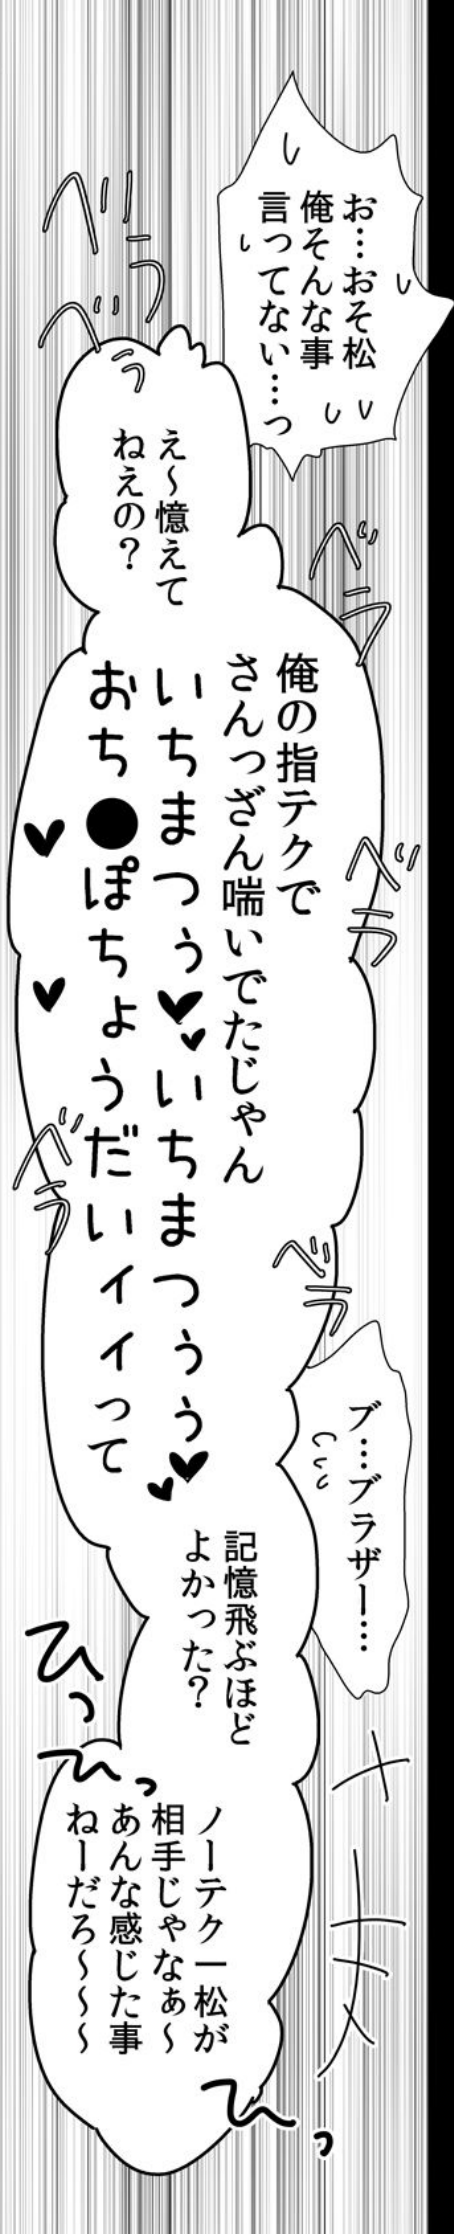 お…おそ松
俺そんな事
言ってない…っ
ベラ
ベラ
え〜憶えて
ねえの？
ベラ
俺の指テクで
さんっざん喘いでたじゃん
いちまつぅ♥♥いちまつぅぅ♥♥
おち●ぽちょうだいィィって
ベラ
ベラ
ベラ
ブ…ブラザー…
記憶飛ぶほど
よかった？
ひっ
ひっ
ノーテク一松が
相手じゃなぁ〜
あんな感じた事
ねーだろ〜〜〜
ひっ